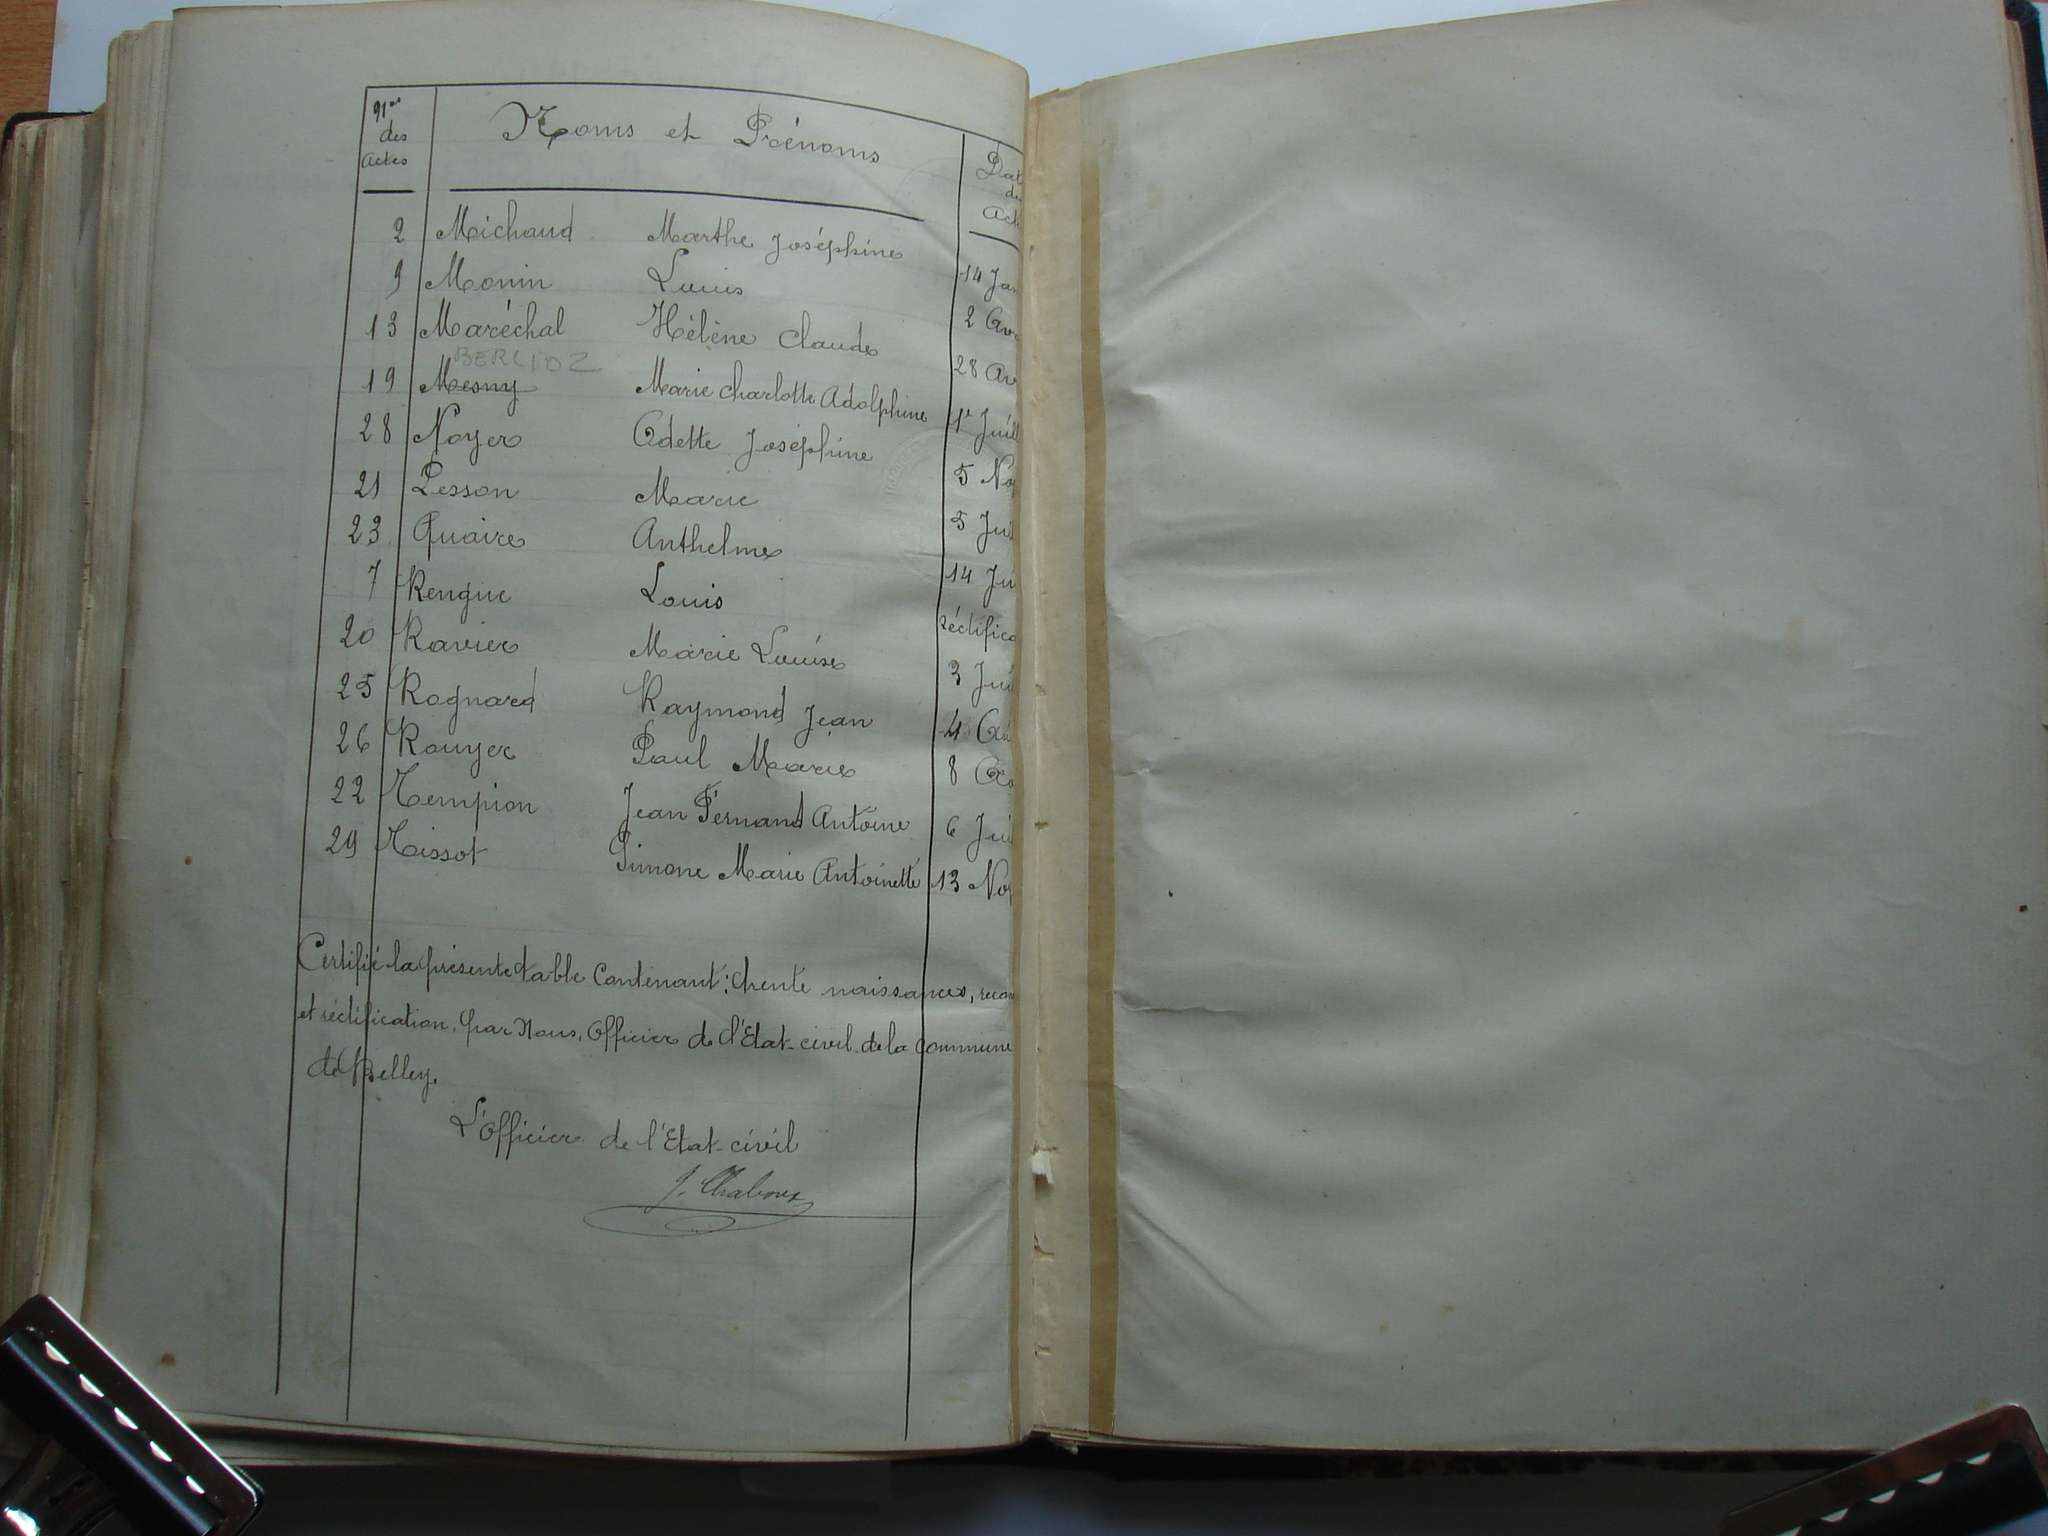 Nos des Actes Noms et Prénoms Dat de Act
2 Michaud Marthe Joséphine 14 Jan
9 Monin Louis 2 Av
13 Maréchal Hélène Claude 28 Av
BERLIOZ
19 Mesny Marie Charlotte Adolphine 1er Juill
28 Noyer Odette Joséphine 5 No
21 Pesson Marie 5 Jui
23 Quaire Anthelme 14 Jui
7 Rengue Louis réctifica
20 Ravier Marie Louise 3 Jui
25 Rognard Raymond Jean 4 
26 Rouyer Paul Marie 8 
22 Tempion Jean Fernand Antoine 6 Jui
29 Tissot Simone Marie Antoinette 13 Nov
Certifié la présente table Contenant: trente naissances, recon
et réctification, par Nous, Officier de l'Etat-civil de la Commune
de Belley.
L'Officier de l'Etat-civil
J. Chaboux